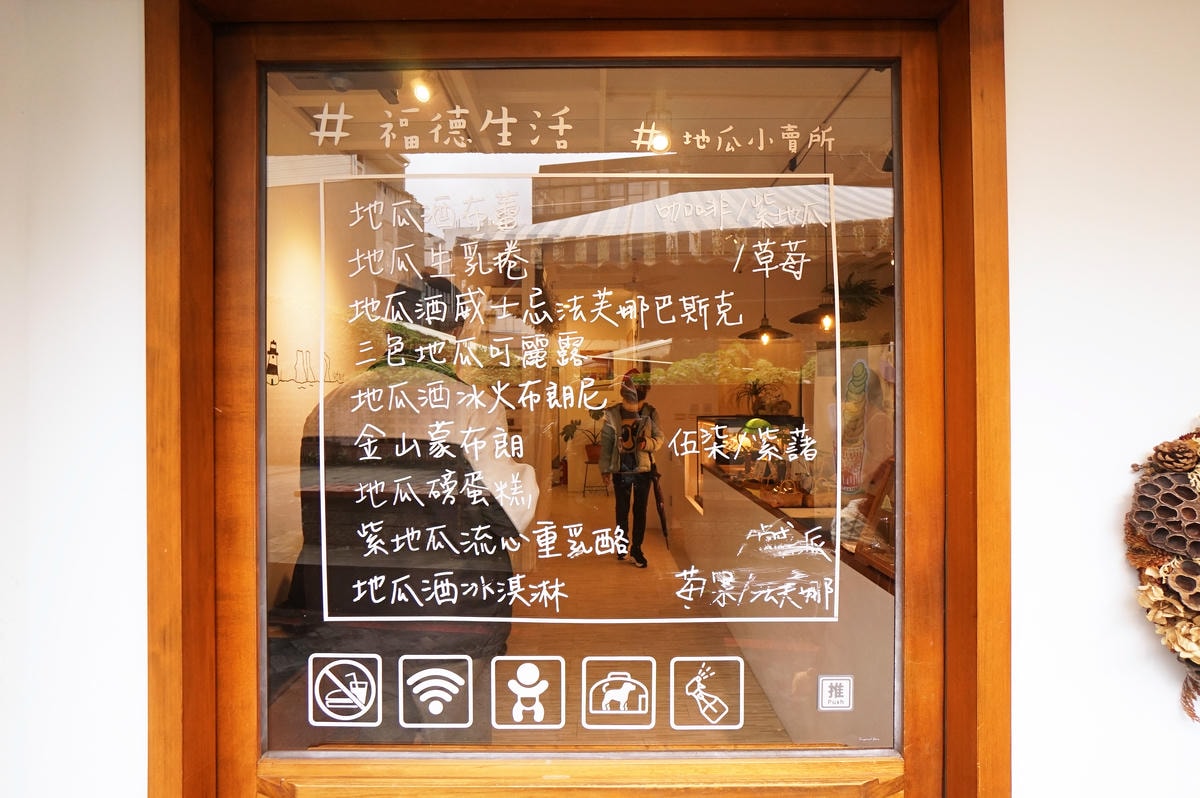 # 福德生活 # 地瓜小賣所
地瓜酒布蕾 咖啡/紫地瓜
地瓜生乳捲 /草莓
地瓜酒威士忌法芙娜巴斯克
三色地瓜可麗露
地瓜酒冰火布朗尼
金山蒙布朗 伍柒/紫藷
地瓜磅蛋糕
紫地瓜流心重乳酪 /鹹派
地瓜酒冰淇淋 /法芙娜
推
Push